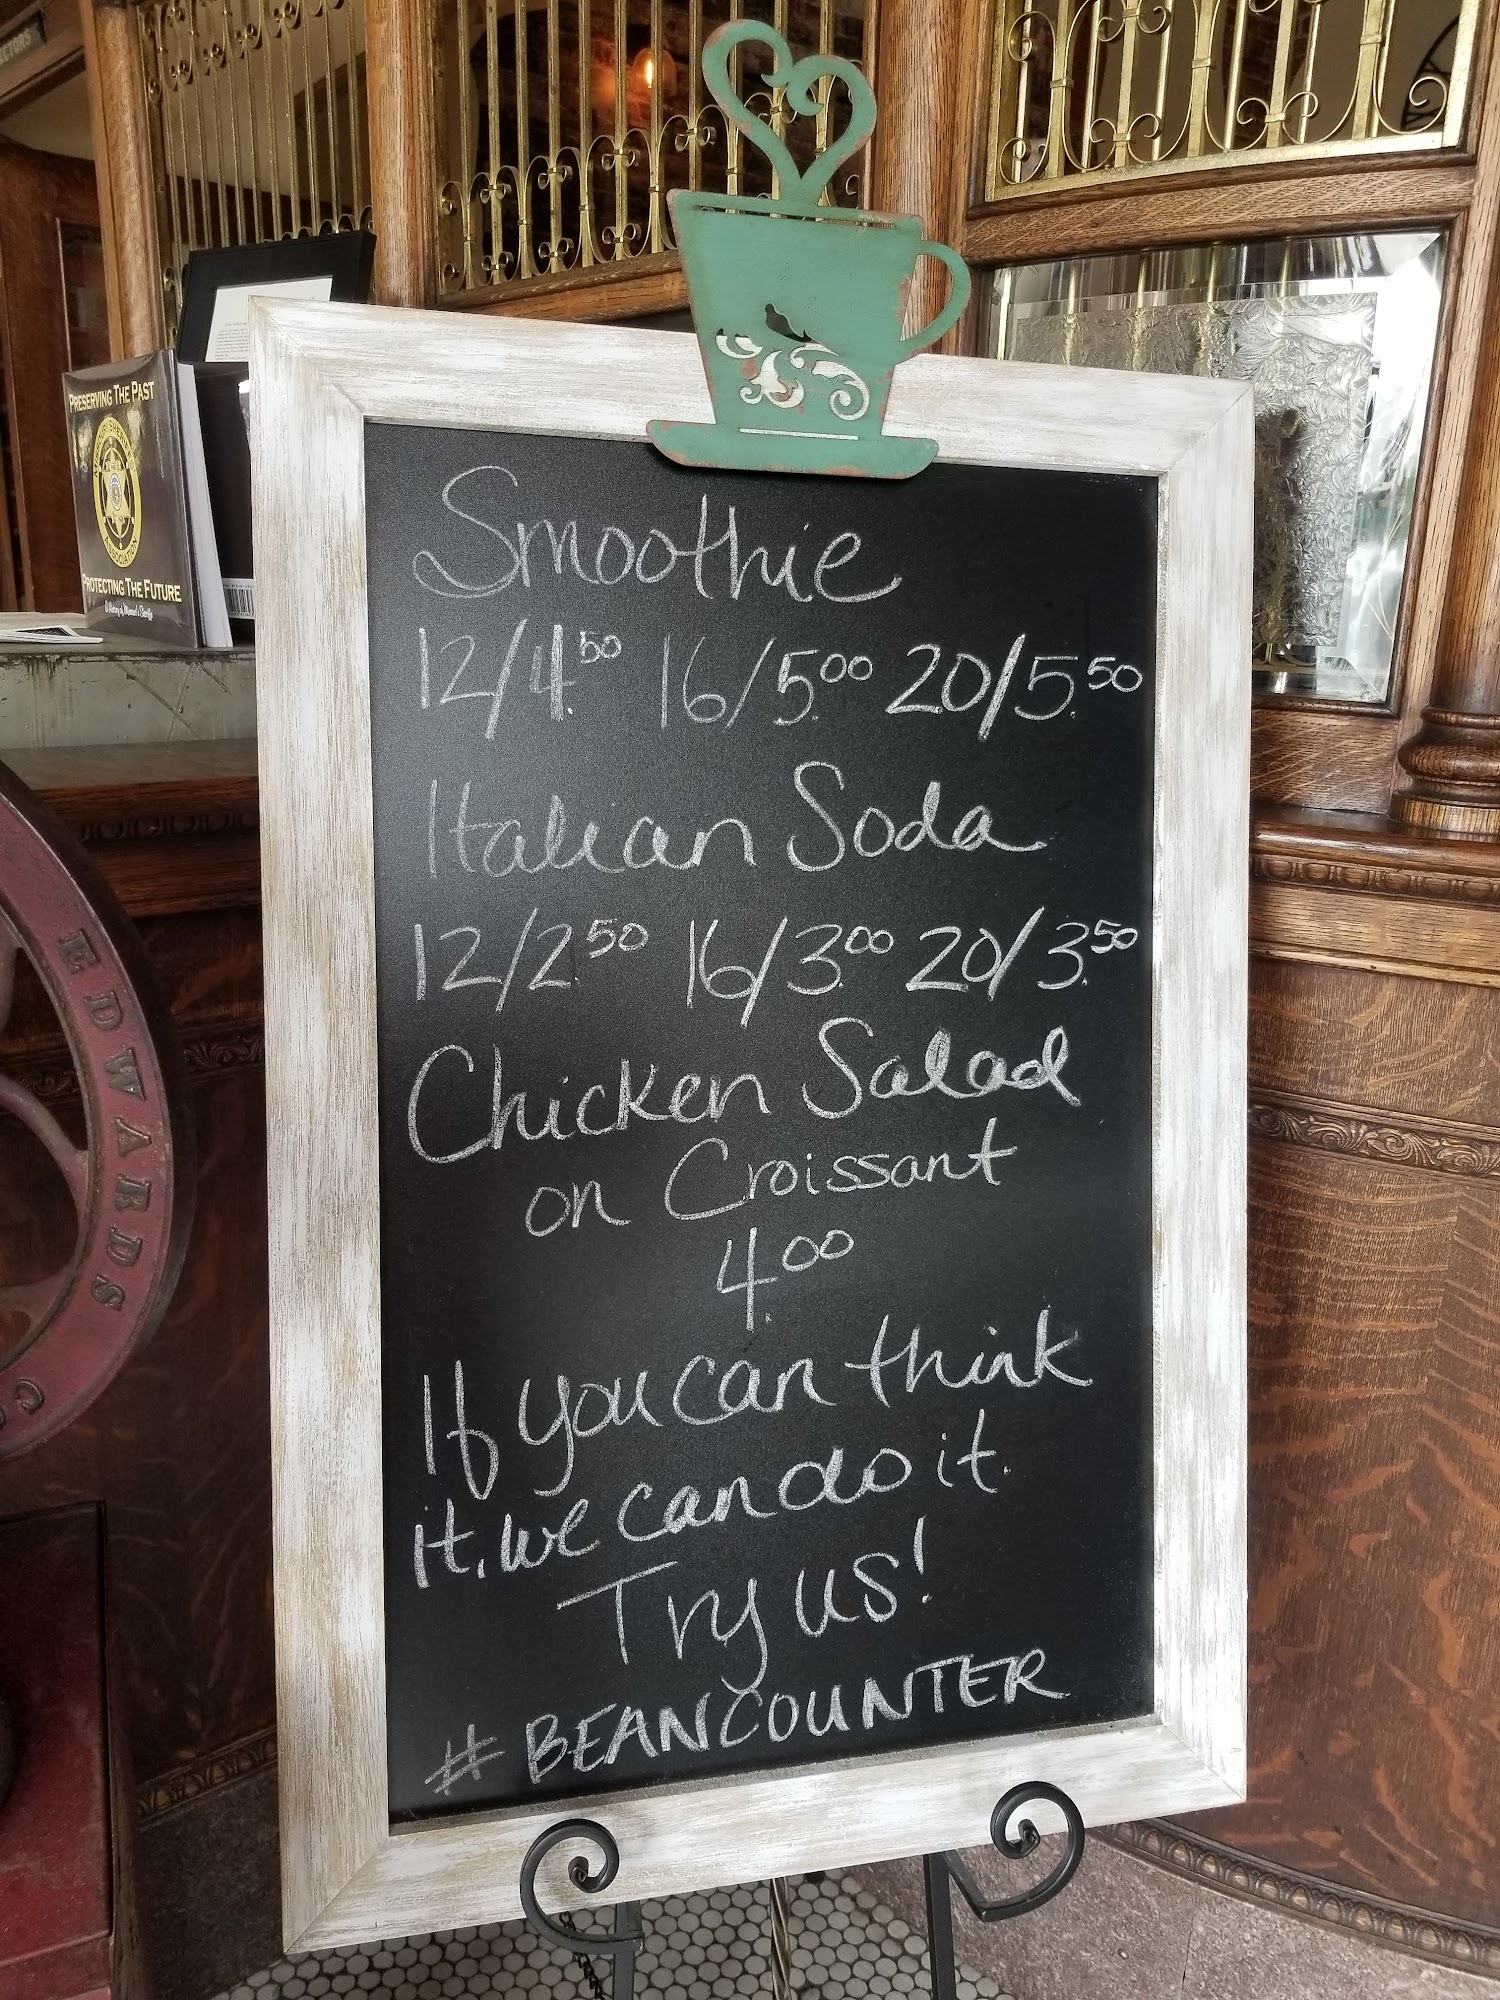 Smoothie
12/4.50 16/5.00 20/5.50
Italian Soda
12/2.50 16/3.00 20/3.50
Chicken Salad
on Croissant
4.00
If you can think
it, we can do it.
Try us!
#BEANCOUNTER
PRESERVING THE PAST
ASSOCIATION
PROTECTING THE FUTURE
A History of Missouri's Sheriffs
EDWARDS